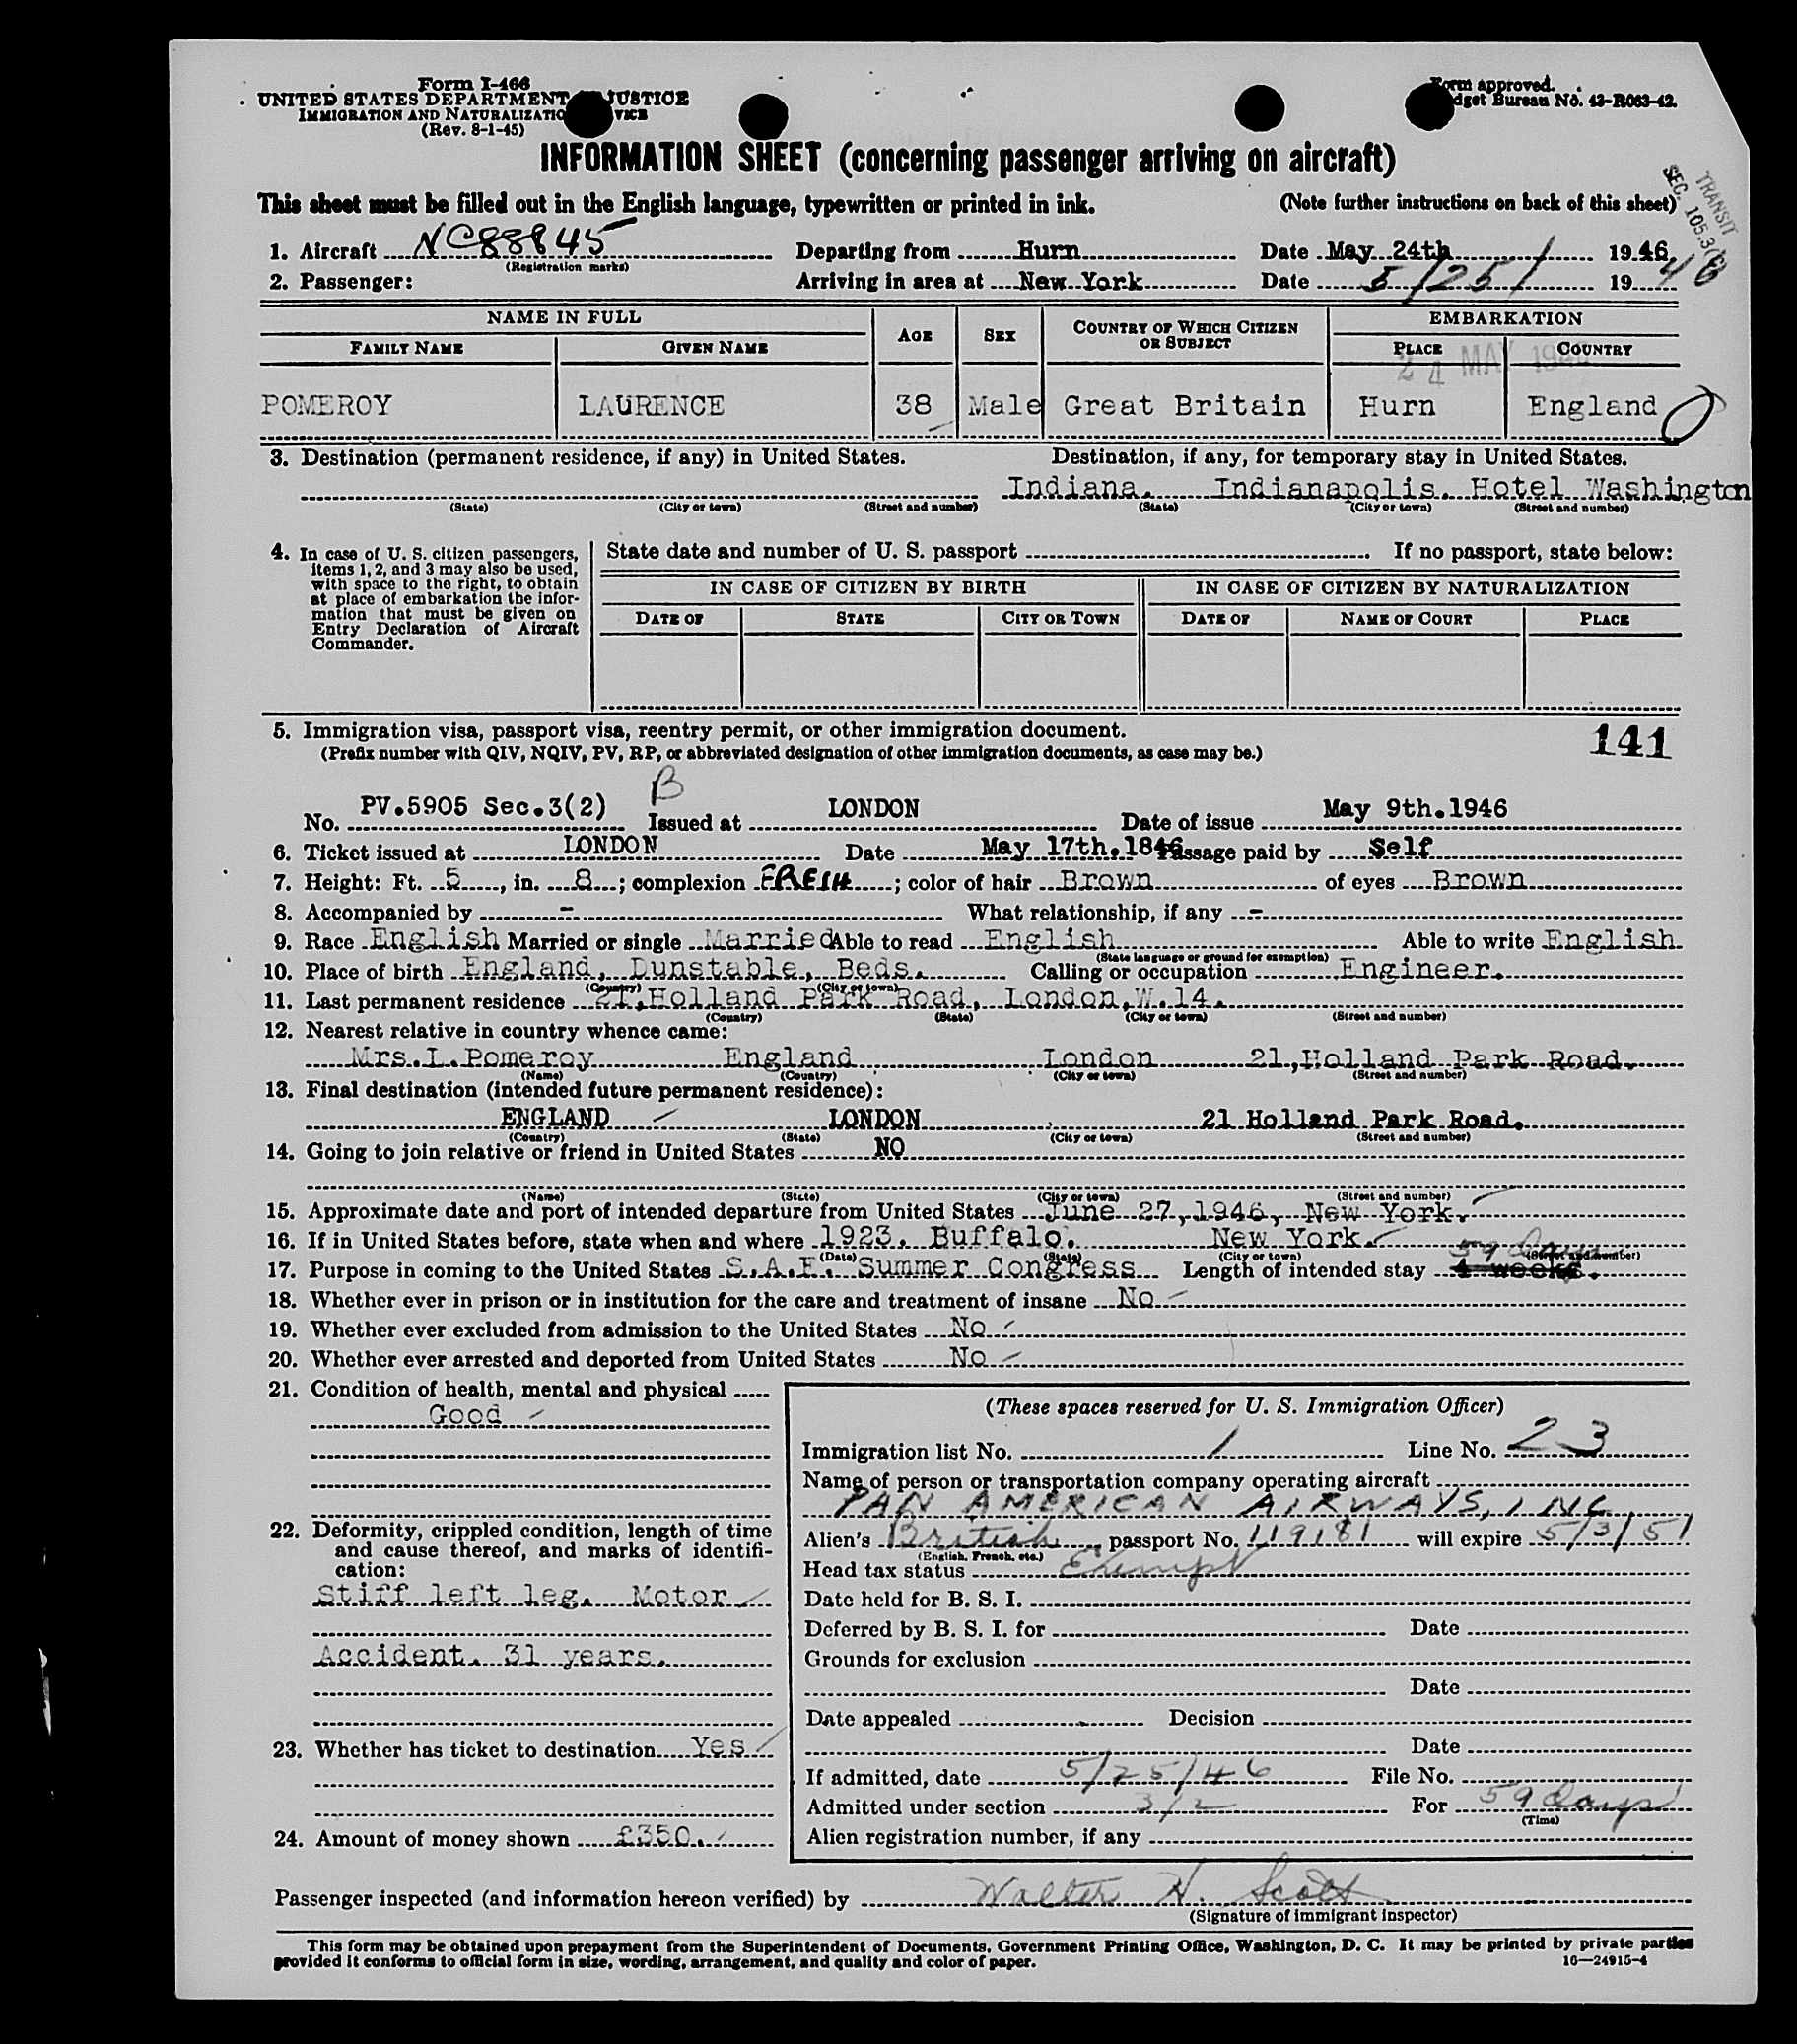 Form I-466
UNITED STATES DEPARTMENT JUSTICE
IMMIGRATION AND NATURALIZATIO VICE
(Rev. 8-1-45)
Form approved.
dget Bureau No. 43-R063-42.
INFORMATION SHEET (concerning passenger arriving on aircraft)
TRANSIT
SEC. 105.3
This sheet must be filled out in the English language, typewritten or printed in ink. (Note further instructions on back of this sheet)
1. Aircraft NC88845 Departing from Hurn Date May 24th 1946
(Registration marks)
2. Passenger: Arriving in area at New York Date 5/25/ 19 46
NAME IN FULL AGE SEX COUNTRY OF WHICH CITIZEN OR SUBJECT EMBARKATION
FAMILY NAME GIVEN NAME PLACE COUNTRY
24 MAY 194
POMEROY LAURENCE 38 Male Great Britain Hurn England
3. Destination (permanent residence, if any) in United States. Destination, if any, for temporary stay in United States.
Indiana. Indianapolis. Hotel Washington
(State) (City or town) (Street and number) (State) (City or town) (Street and number)
4. In case of U. S. citizen passengers, items 1, 2, and 3 may also be used, with space to the right, to obtain at place of embarkation the information that must be given on Entry Declaration of Aircraft Commander.
State date and number of U. S. passport If no passport, state below:
IN CASE OF CITIZEN BY BIRTH IN CASE OF CITIZEN BY NATURALIZATION
DATE OF STATE CITY OR TOWN DATE OF NAME OF COURT PLACE
5. Immigration visa, passport visa, reentry permit, or other immigration document.
141
(Prefix number with QIV, NQIV, PV, RP, or abbreviated designation of other immigration documents, as case may be.)
B
No. PV.5905 Sec.3(2) Issued at LONDON Date of issue May 9th.1946
6. Ticket issued at LONDON Date May 17th.1846 Passage paid by Self
7. Height: Ft. 5, in. 8; complexion FRESH; color of hair Brown of eyes Brown
8. Accompanied by - What relationship, if any -
9. Race English Married or single Married Able to read English Able to write English
(State language or ground for exemption)
10. Place of birth England, Dunstable, Beds. Calling or occupation Engineer.
(Country) (City or town)
11. Last permanent residence 21,Holland Park Road, London,W.14.
(Country) (State) (City or town) (Street and number)
12. Nearest relative in country whence came:
Mrs.L.Pomeroy England London 21,Holland Park Road.
(Name) (Country) (City or town) (Street and number)
13. Final destination (intended future permanent residence):
ENGLAND LONDON 21 Holland Park Road.
(Country) (State) (City or town) (Street and number)
14. Going to join relative or friend in United States NO
(Name) (State) (City or town) (Street and number)
15. Approximate date and port of intended departure from United States June 27,1946, New York.
16. If in United States before, state when and where 1923. Buffalo. New York.
(Date) (State) (City or town) (Street and number)
59 days
17. Purpose in coming to the United States S.A.E. Summer Congress Length of intended stay 4 weeks.
18. Whether ever in prison or in institution for the care and treatment of insane No
19. Whether ever excluded from admission to the United States No
20. Whether ever arrested and deported from United States No
21. Condition of health, mental and physical
Good
22. Deformity, crippled condition, length of time and cause thereof, and marks of identification:
Stiff left leg. Motor
Accident. 31 years.
23. Whether has ticket to destination Yes
24. Amount of money shown £350.
(These spaces reserved for U. S. Immigration Officer)
Immigration list No. 1 Line No. 23
Name of person or transportation company operating aircraft
PAN AMERICAN AIRWAYS, INC
Alien's British passport No. 119181 will expire 5/3/51
(English, French, etc.)
Head tax status Exempt
Date held for B. S. I.
Deferred by B. S. I. for Date
Grounds for exclusion
Date
Date appealed Decision
Date
If admitted, date 5/25/46 File No.
Admitted under section 3/2 For 59 days
(Time)
Alien registration number, if any
Passenger inspected (and information hereon verified) by Walter H. Scott
(Signature of immigrant inspector)
This form may be obtained upon prepayment from the Superintendent of Documents, Government Printing Office, Washington, D. C. It may be printed by private parties
provided it conforms to official form in size, wording, arrangement, and quality and color of paper. 16—24915-4